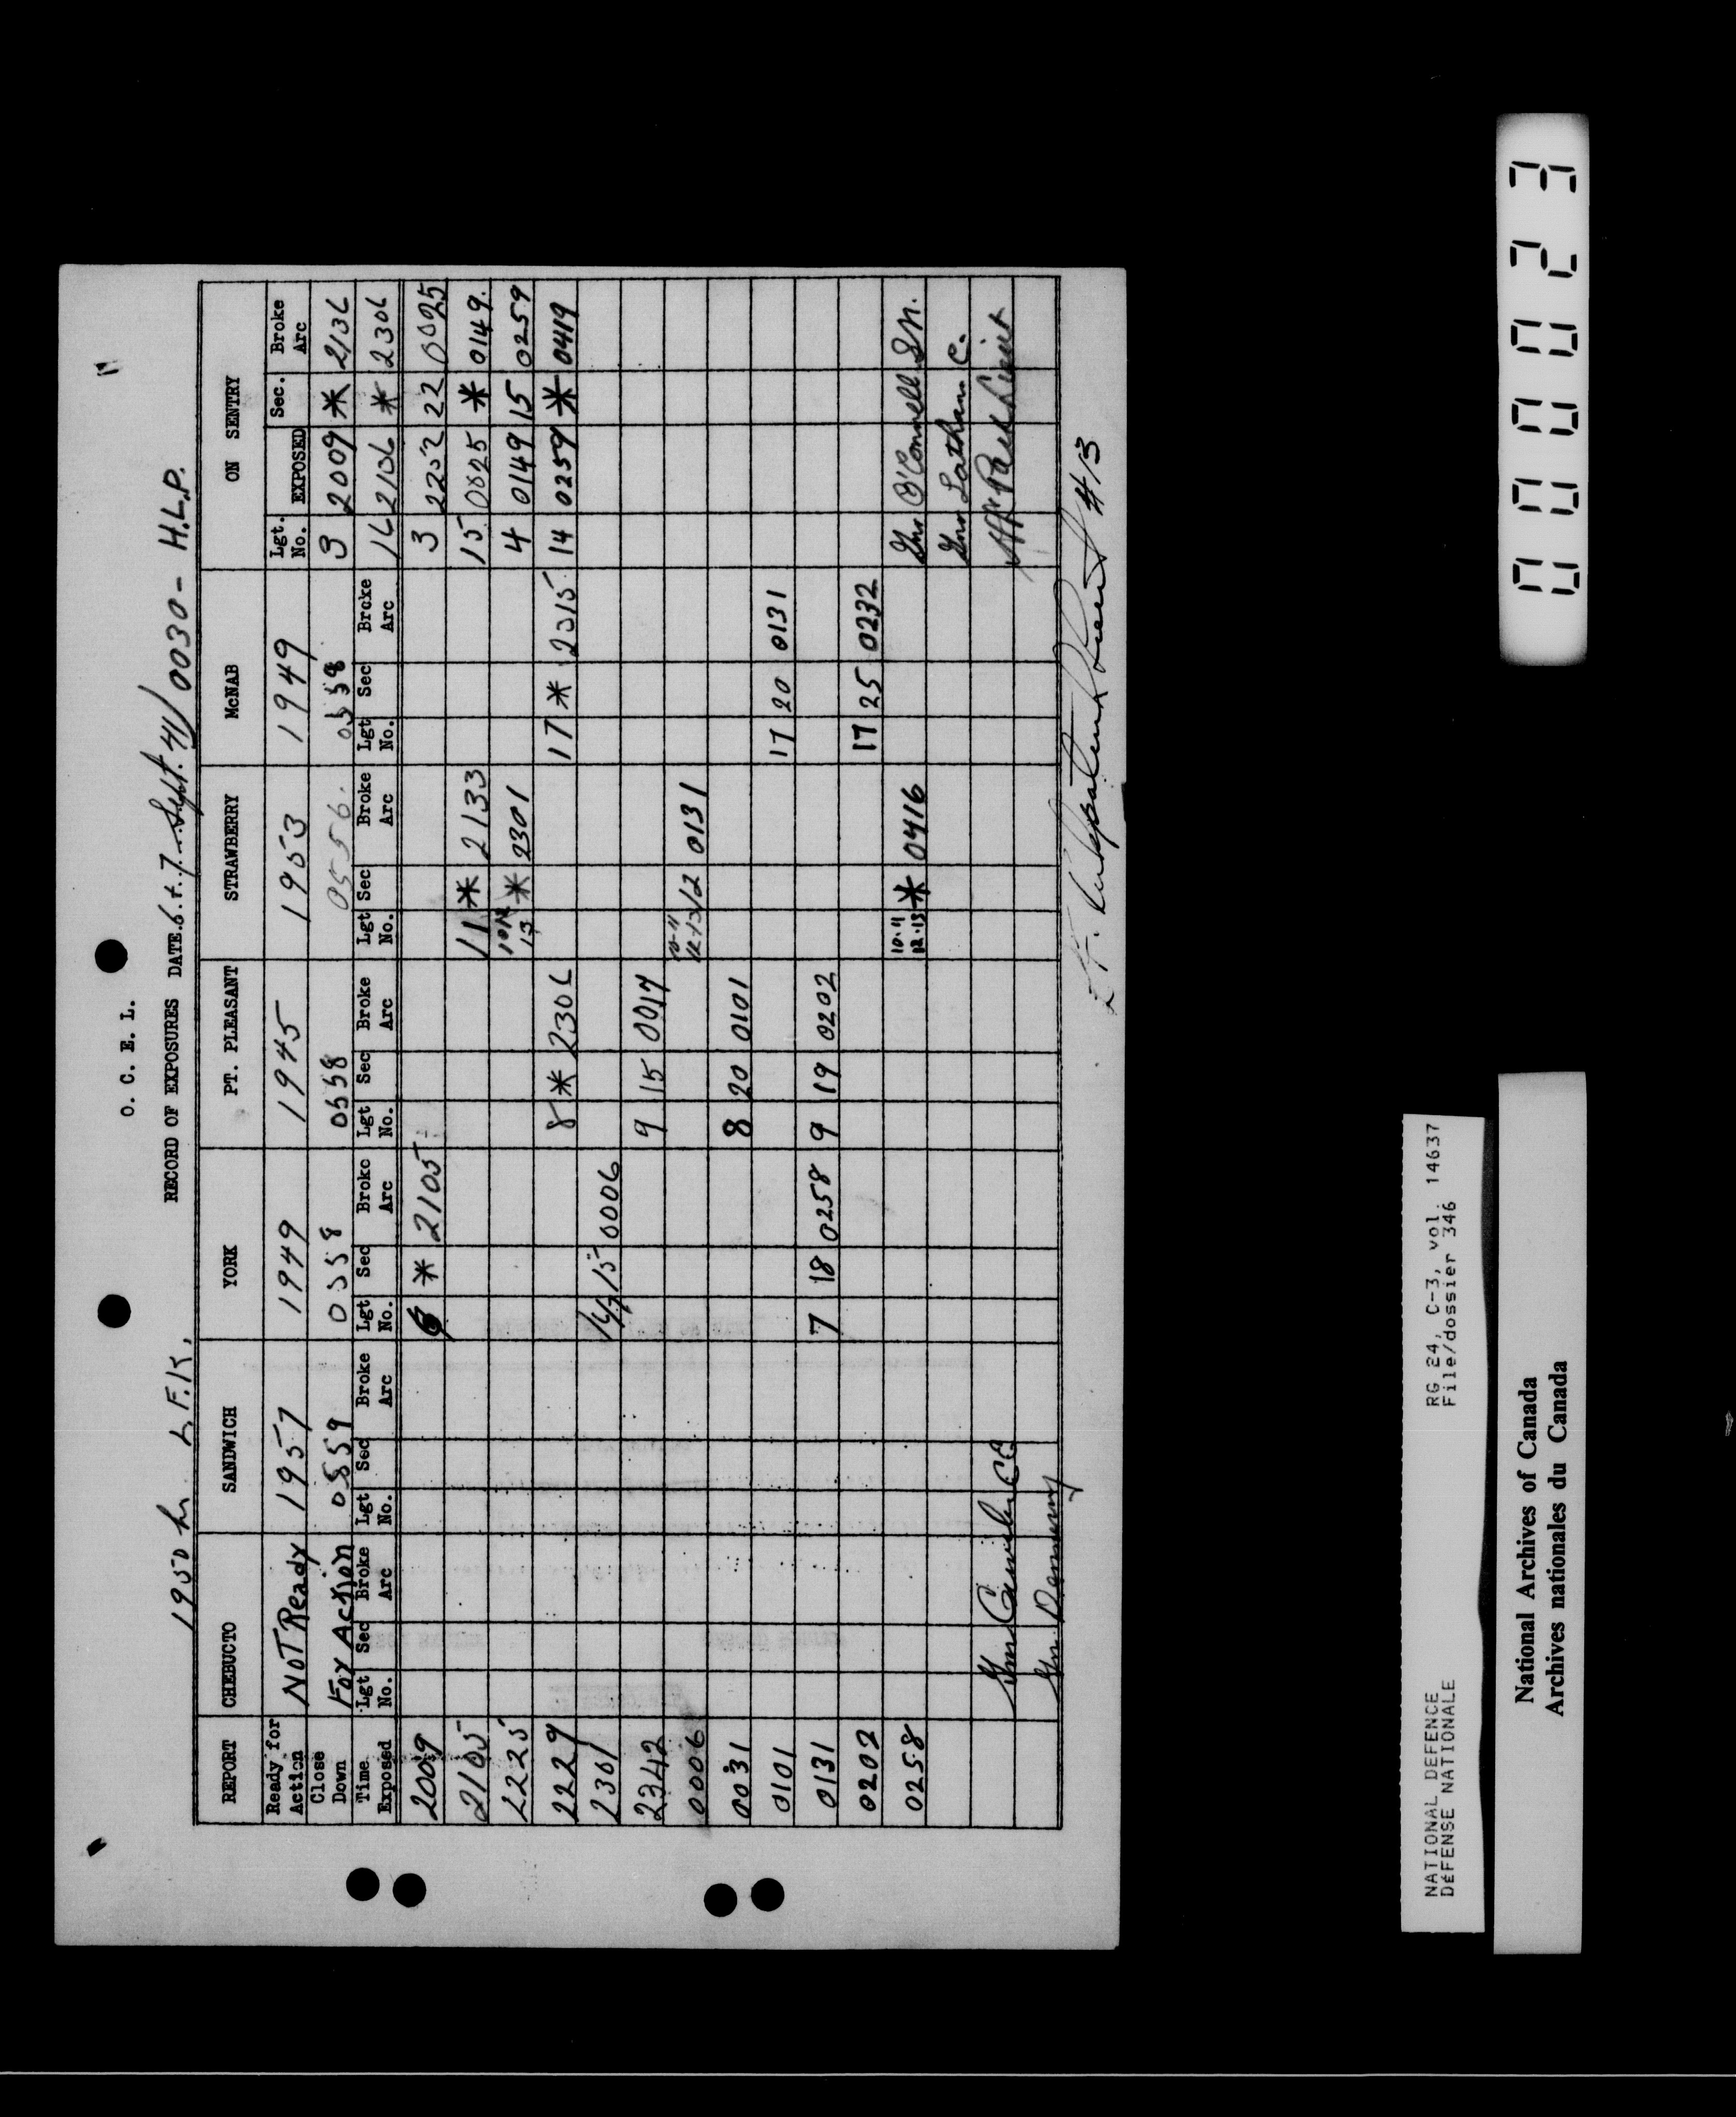 O. C. E. L.
1950 hr L.F.K. RECORD OF EXPOSURES DATE 6 & 7 Sept. 41/0030 - H.L.P.
REPORT CHEBUCTO SANDWICH YORK PT. PLEASANT STRAWBERRY McNAB ON SENTRY
Ready for Action NOT Ready 1957 1949 1945 1953 1949 Lgt. No. EXPOSED Sec. Broke Arc
Close Down For Action 0559 0558 0558 0556. 0558 3 2009 * 2136
Time Exposed Lgt No. Sec Broke Arc Lgt No. Sec Broke Arc Lgt No. Sec Broke Arc Lgt No. Sec Broke Arc Lgt No. Sec Broke Arc Lgt No. Sec Broke Arc 16 2106 * 2306
2009 6 * 2105 3 2232 22 0025
2105 11 * 2133 15 0025 * 0149.
2225 10 12 13 * 2301 4 0149 15 0259
2229 8 * 2306 17 * 2315 14 0259 * 0419
2301 15 0006
2342 9 15 0017
0006 10-11 12-13 12 0131
0031 8 20 0101
0101 17 20 0131
0131 7 18 0258 9 19 0202
0202 17 25 0232
0258 10-11 12-13 * 0416 Gnr O'Connell
Gnr Latham C.
Gnr
Gnr
Lt. Kirkpatrick Lieut #13
NATIONAL DEFENCE RG 24, C-3, vol. 14637
DÉFENSE NATIONALE File/dossier 346
National Archives of Canada
Archives nationales du Canada
000023